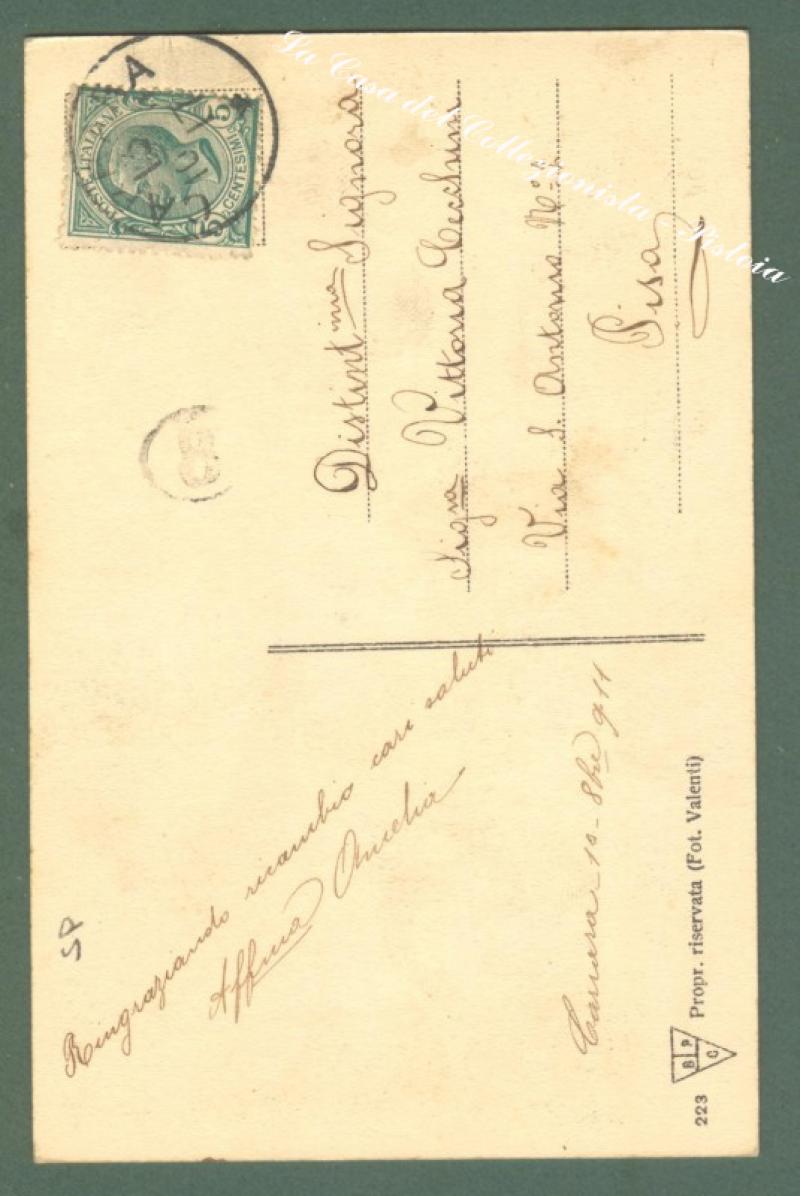 La Casa del Collezionista - Pistoia
POSTE ITALIANE
CENTESIMI 5
Distintma Signora
Sigra Vittoria Cecchini
Via S. Antonio No 1
Pisa
Ringraziando ricambio cari saluti
Affma Amelia
Carrara 10 - 8bre 911
223 B P C Propr. riservata (Fot. Valenti)
SP